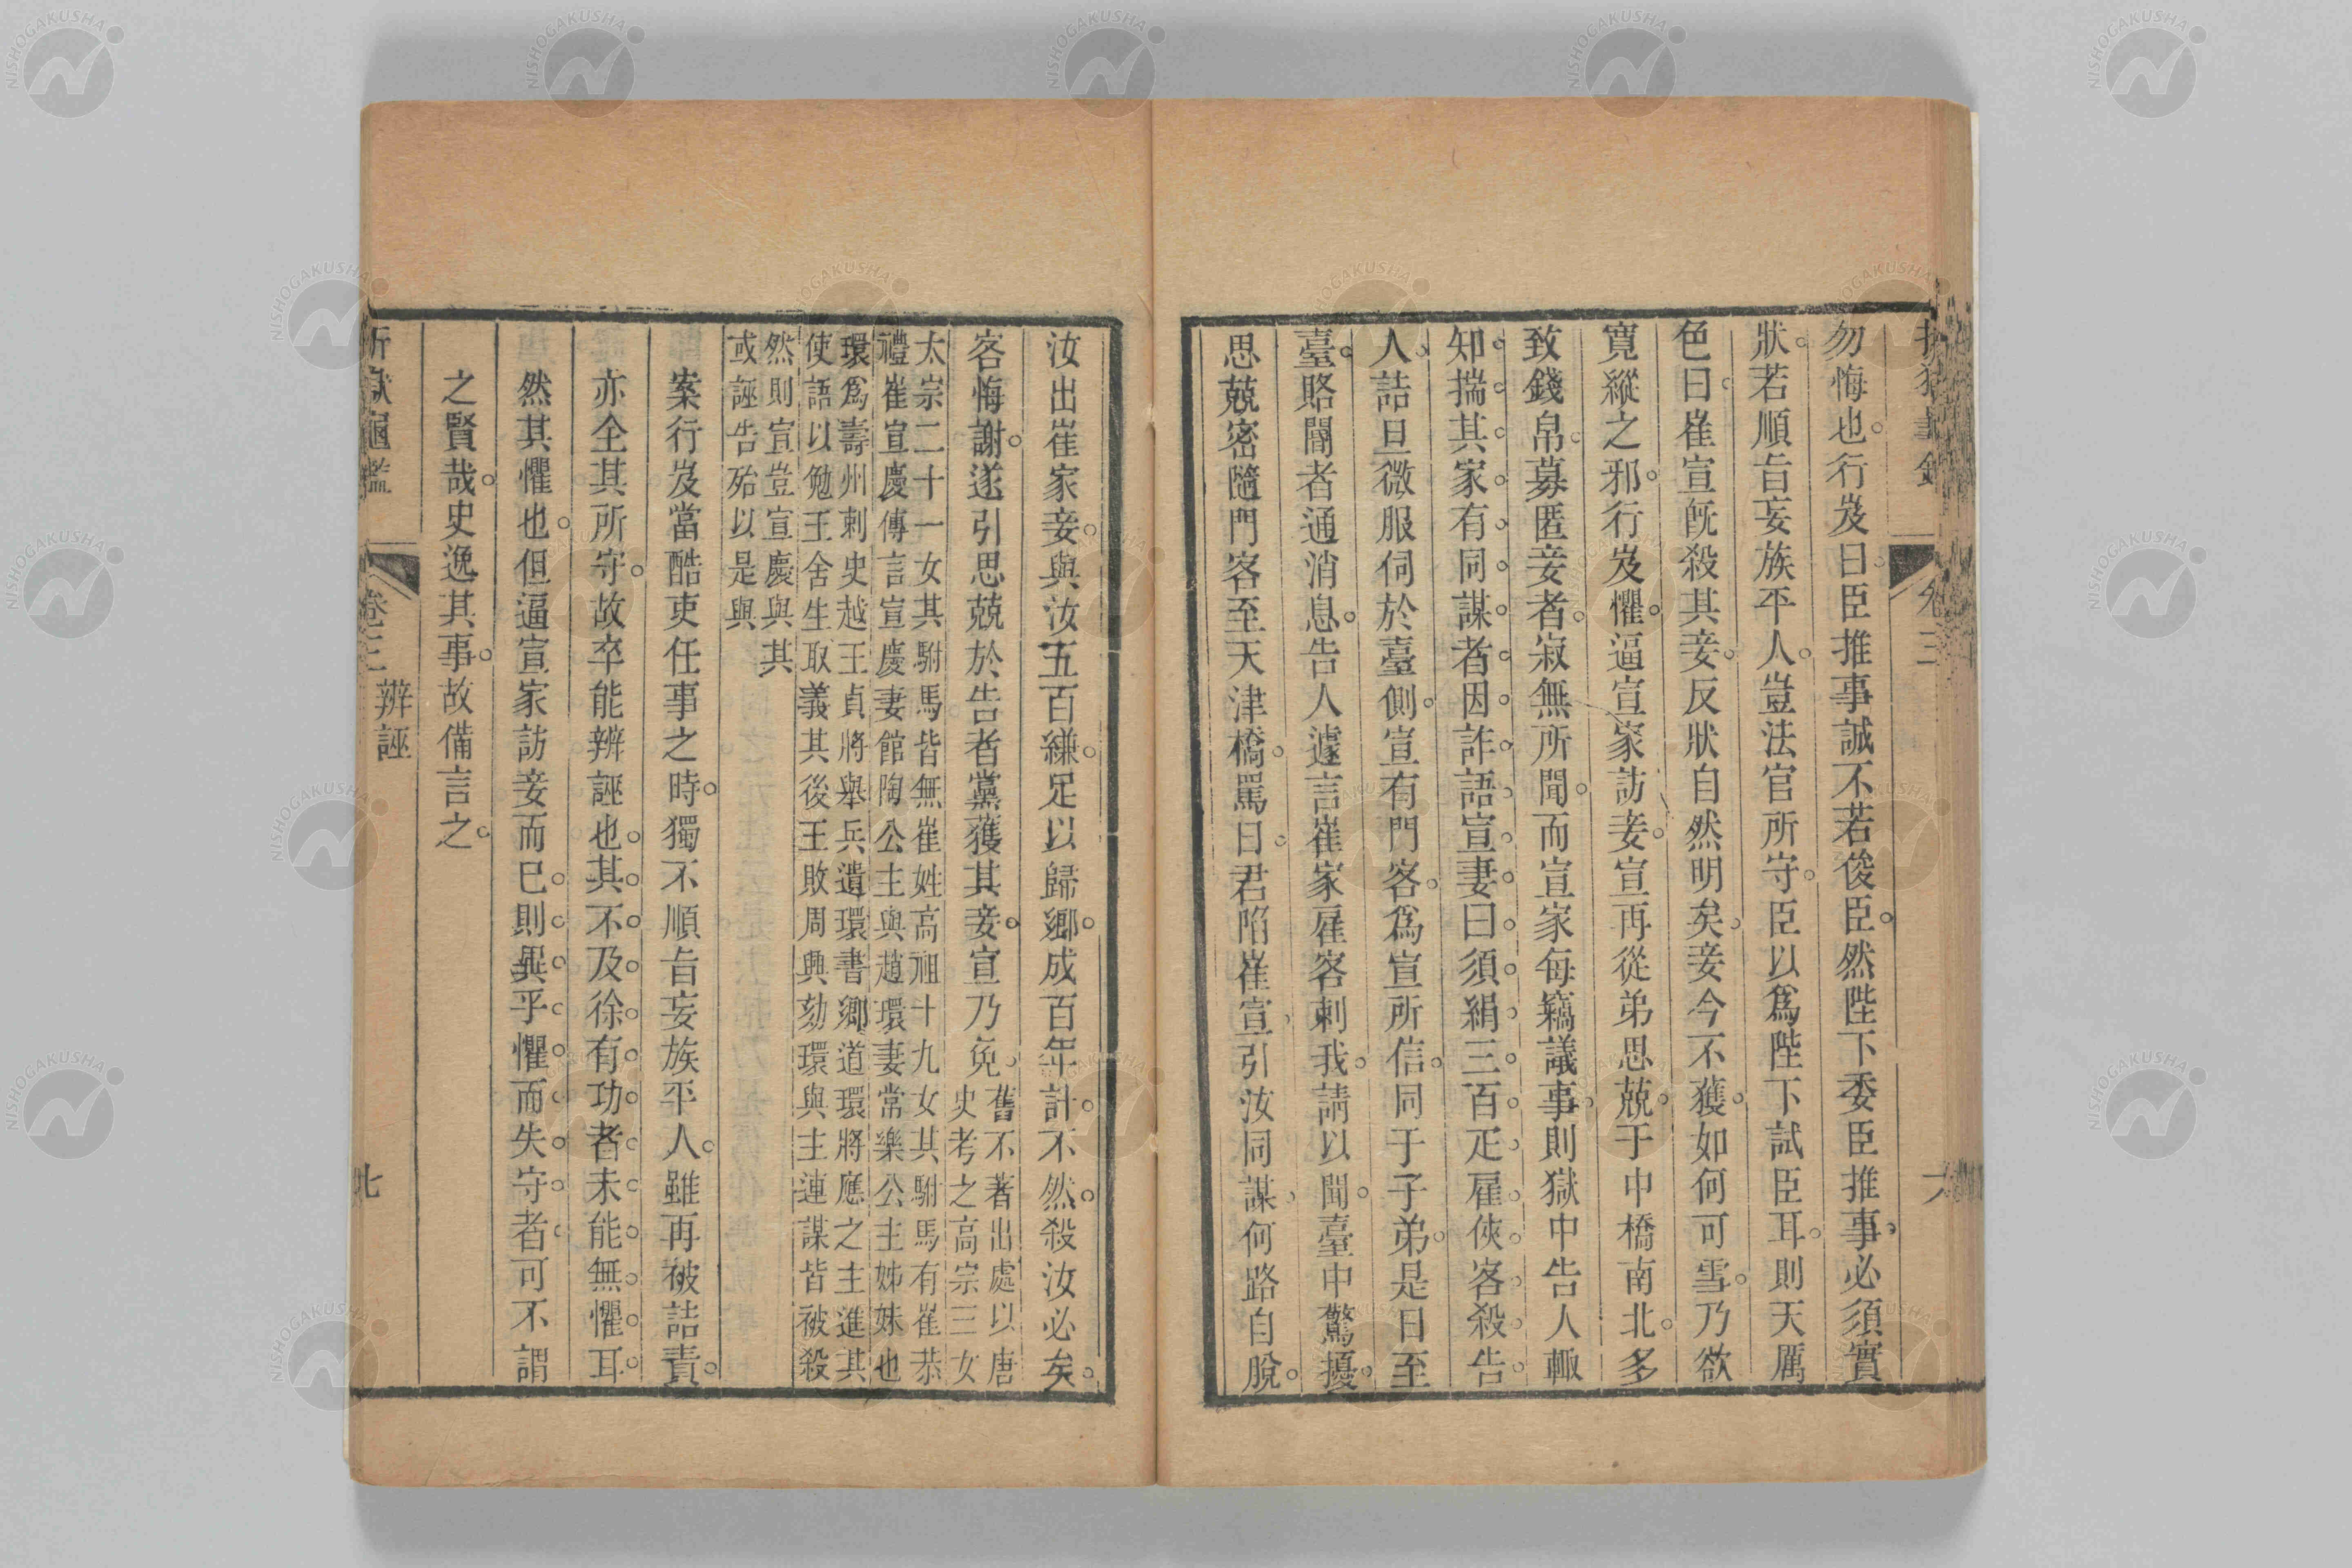 勿悔也。行岌曰。臣推事誠不若俊臣。然陛下委臣推事。必須實
狀。若順旨妄族平人。豈法官所守。臣以爲陛下試臣耳。則天厲
色曰。崔宣旣殺其妾。反狀自然明矣。妾今不獲。如何可雪。乃欲
寬縱之邪。行岌懼。逼宣家訪妾。宣再從弟思兢。于中橋南北。多
致錢帛。募匿妾者。寂無所聞。而宣家每竊議事。則獄中告人輙
知。揣其家有同謀者。因詐語宣妻曰。須絹三百疋。雇俠客殺告
人。詰旦微服伺於臺側。宣有門客。爲宣所信。同于子弟。是日至
臺。賂閽者通消息。告人遽言崔家雇客刺我。請以聞。臺中驚擾。
思兢密隨門客至天津橋。罵曰。君陷崔宣。引汝同謀。何路自脫。
汝出崔家妾。與汝五百縑。足以歸鄉。成百年計。不然。殺汝必矣。
客悔謝。遂引思兢於告者黨獲其妾。宣乃免。舊不著出處以唐
史考之高宗三女
太宗二十一女其駙馬皆無崔姓高祖十九女其駙馬有崔恭
禮崔宣慶傳言宣慶妻館陶公主與趙環妻常樂公主姊妹也
環爲壽州刺史越王貞將舉兵遺環書鄉道環將應之主進其
使語以勉王舍生取義其後王敗周興劾環與主連謀皆被殺
然則宣豈宣慶與其
或誣告殆以是與
案行岌當酷吏任事之時。獨不順旨妄族平人。雖再被詰責。
亦全其所守。故卒能辨誣也。其不及徐有功者。未能無懼耳。
然其懼也。但逼宣家訪妾而已。則異乎懼而失守者。可不謂
之賢哉。史逸其事。故備言之。
卷三
辨誣